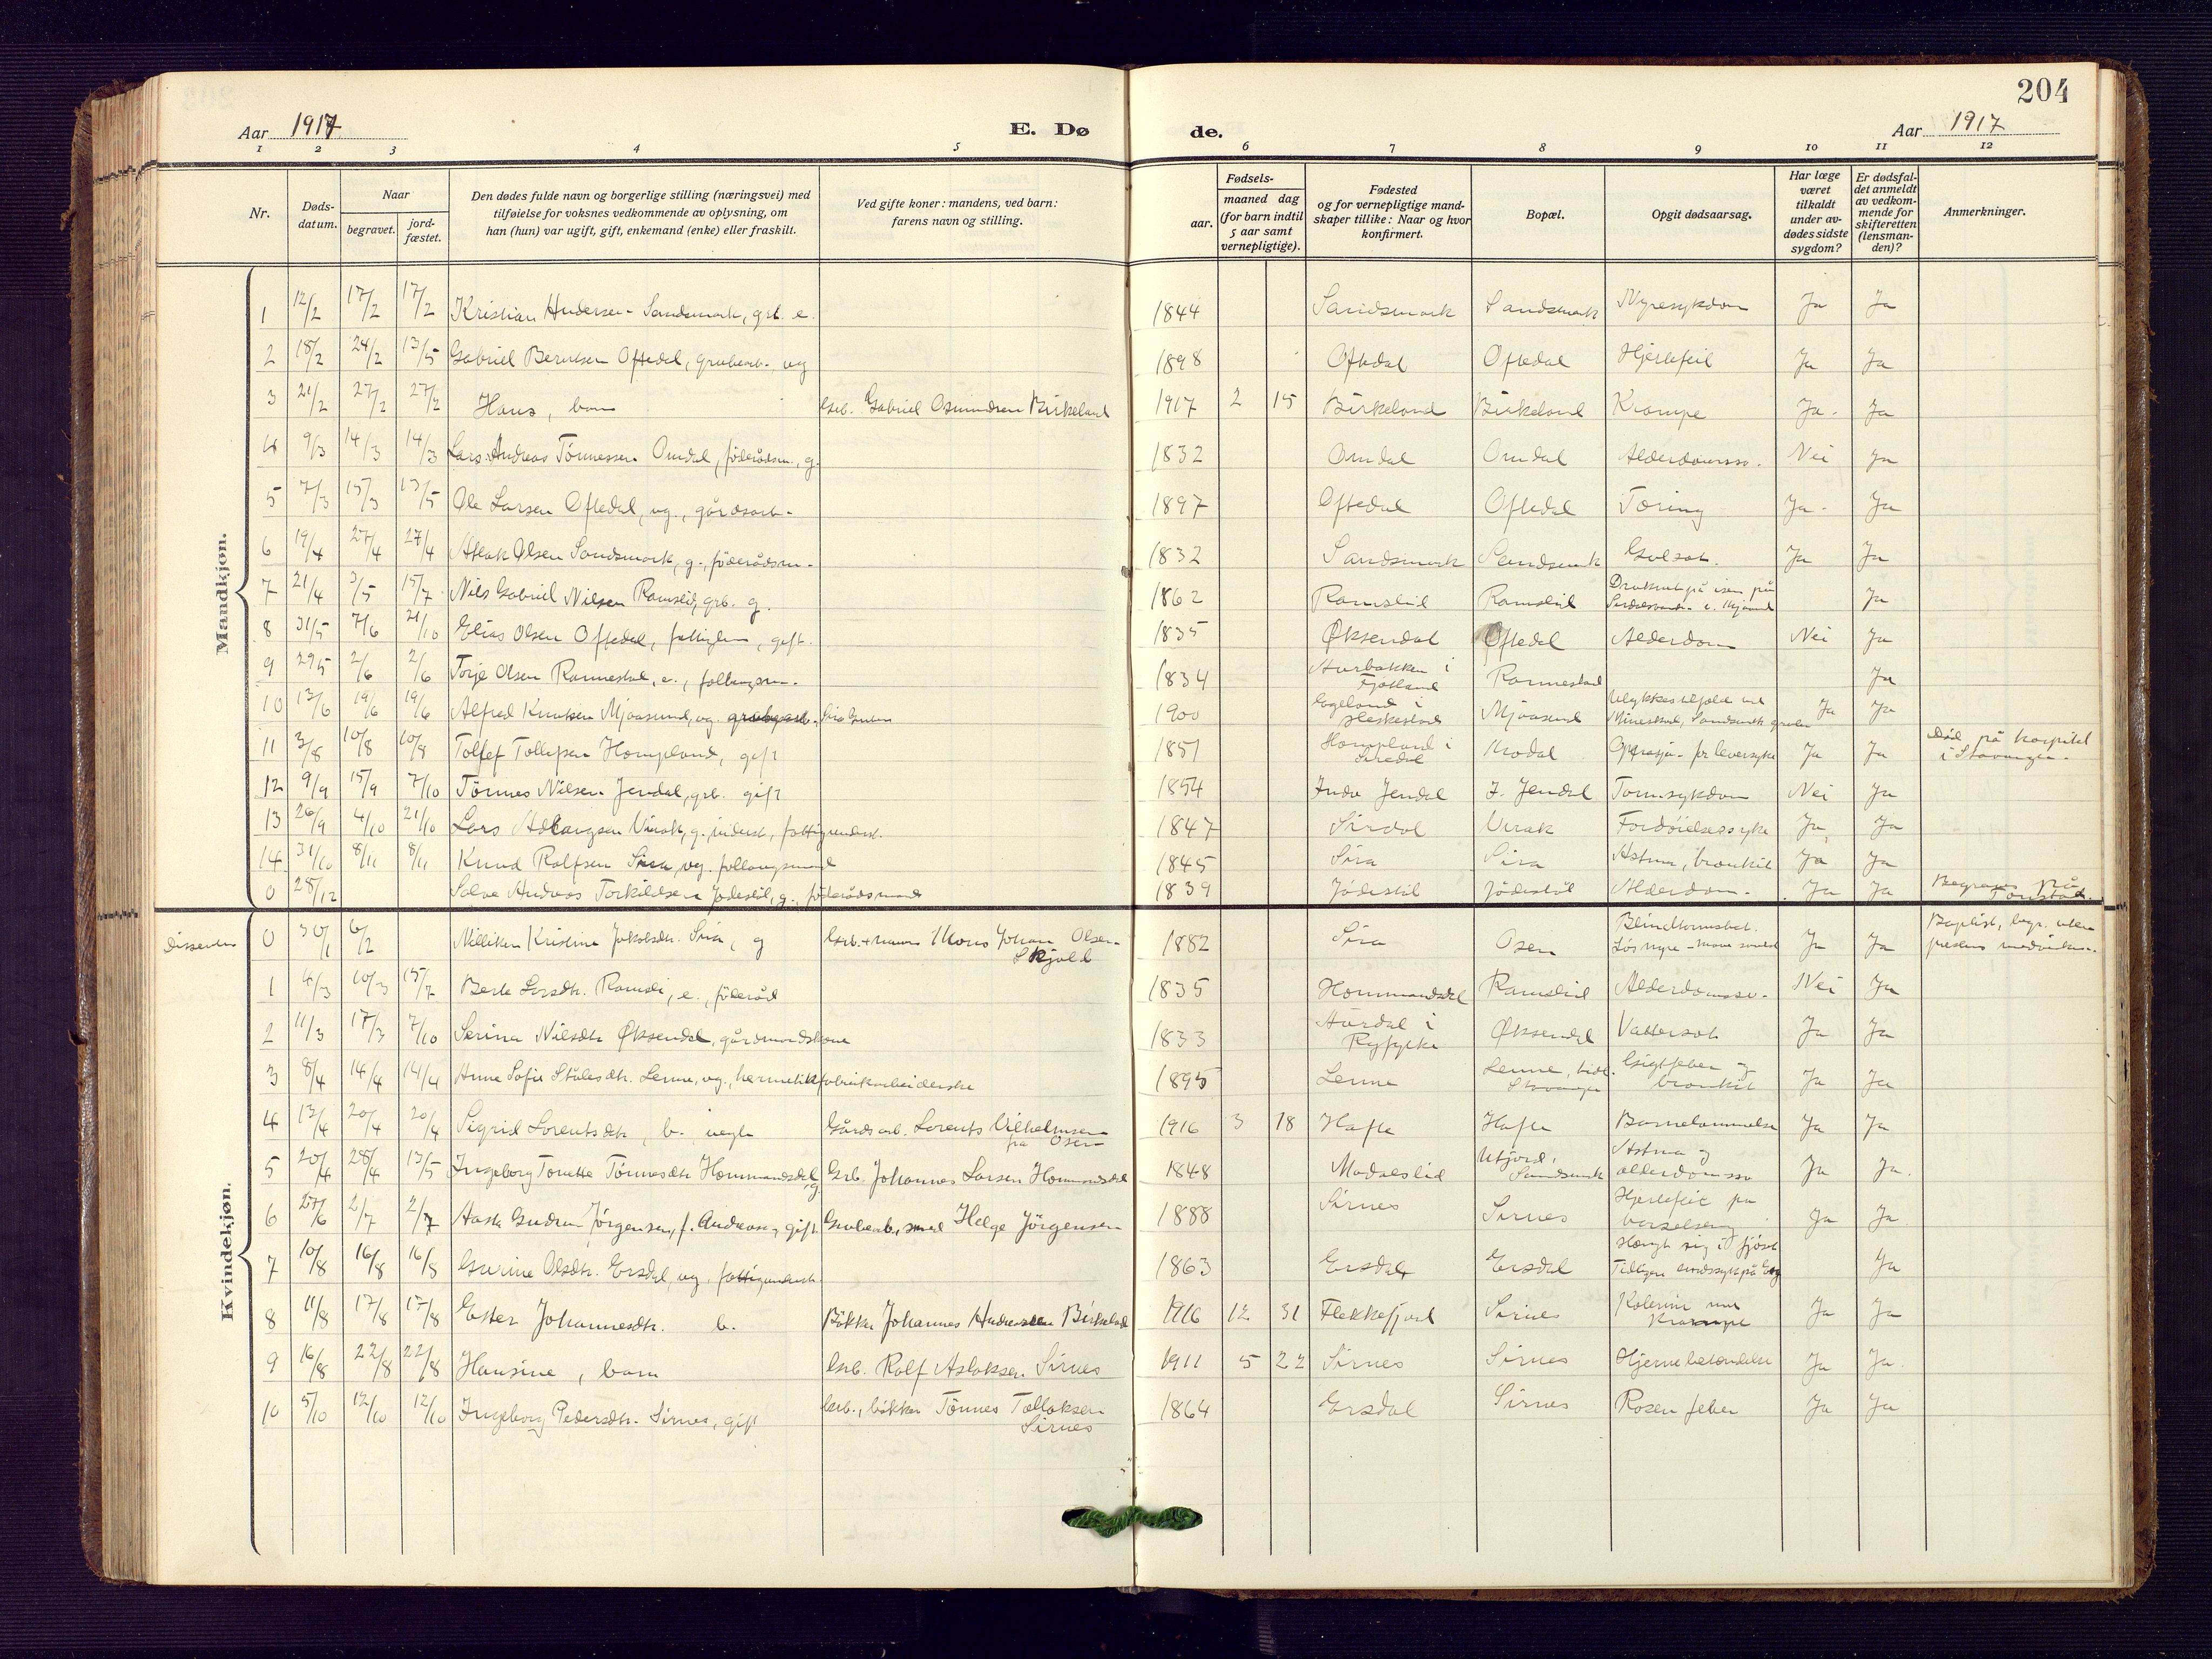 204
Aar 1917 E. Dø de. Aar 1917
1 2 3 4 5 6 7 8 9 10 11 12
Nr. Døds-datum. Naar begravet. jord-fæstet. Den dødes fulde navn og borgerlige stilling (næringsvei) med tilføielse for voksnes vedkommende av oplysning, om han (hun) var ugift, gift, enkemand (enke) eller fraskilt. Ved gifte koner: mandens, ved barn: farens navn og stilling. Fødsels- aar. maaned dag (for barn indtil 5 aar samt vernepligtige). Fødested og for vernepligtige mand-skaper tillike: Naar og hvor konfirmert. Bopæl. Opgit dødsaarsag. Har læge været tilkaldt under av-dødes sidste sygdom? Er dødsfal-det anmeldt av vedkom-mende for skifteretten (lensman-den)? Anmerkninger.
Mandkjøn.
1 12/2 17/2 17/2 Kristian Andersen Sandsmark, grb. e. 1844 Sandsmark Sandsmark Nyresykdom Ja Ja
2 18/2 24/2 13/5 Gabriel Berntsen Oftedal, grubearb., ug 1898 Oftedal Oftedal Hjertefeil Ja Ja
3 21/2 27/2 27/2 Hans, barn Grb. Gabriel Osmundsen Birkeland 1917 2 15 Birkeland Birkeland Krampe Ja. Ja
4 9/3 14/3 14/3 Lars Andreas Tönnessen Omdal, föderådsm., g. 1832 Omdal Omdal Alderdomssv. Nei Ja
5 7/3 15/3 13/5 Ole Larsen Oftedal, ug., gårdsarb. 1897 Oftedal Oftedal Tæring Ja. Ja
6 19/4 27/4 27/4 Aslak Olsen Sandsmark, g., föderådsm. 1832 Sandsmark Sandsmark Gulsot. Ja Ja
7 21/4 3/5 15/7 Nils Gabriel Nilsen Ramslid, grb. g. 1862 Ramslid Ramslid Druknet på isen på Ja
8 31/5 7/6 21/10 Elias Olsen Oftedal, fattiglem, gift. 1835 Øksendal Oftedal Alderdom Nei Ja
9 29/5 2/6 2/6 Torje Olsen Rannestad, e., 1834 i Fjotland Rannestad Ja
10 13/6 19/6 19/6 Alfred Knutsen Mjaasund, ug. Sira Gruber 1900 i Heskestad Mjaasund Ulykkestilfælde ved Mineskud, Sandsmark gruber Ja Ja
11 3/8 10/8 10/8 Tollef Tollefsen Hompland, gift 1851 Hompland i Siredal Krodal Operasjon for leversyke Ja Ja Död på hospital i Stavanger.
12 9/9 15/9 7/10 Tönnes Nilsen Jendal, grb. gift 1854 Indre Jendal I. Jendal Tarmsykdom Nei Ja
13 26/9 4/10 21/10 Lars Virak, g., inderst, fattigunderst. 1847 Sirdal Virak Fordöielsessyke Ja Ja
14 31/10 8/11 8/11 Knud Rolfsen Sira, ug. follaugsmand 1845 Sira Sira Astma, bronkit Ja Ja
0 28/12 Salve Andreas Torkildsen Jödestöl, g., föderådsmand 1839 Jödestöl Jödestöl Alderdom. Ja Ja Begraves på Tonstad.
Kvindekjøn.
Dissenter 0 30/1 6/2 Kristine Jakobsdtr. Sira, g Hans Johan Olsen Skjold 1882 Sira Osen Ja Ja Baptist, begr. uten prestens medvirken.
1 4/3 10/3 15/7 Berte Larsdtr. Ramsli, e., föderåd 1835 Hommandsdal Ramslid Alderdomssv. Nei Ja
2 11/3 17/3 7/10 Serina Nilsdtr Øksendal, gårdmandskone 1833 Aardal i Ryfylke Øksendal Vattersot Ja Ja
3 8/4 14/4 14/4 Anna Sofie Stålesdtr. Lenne, ug., hermetikfabrikarbeiderske 1895 Lenne Lenne, tidl. Stavanger Gigtfeber og bronkit Ja Ja
4 13/4 20/4 20/4 Sigrid Lorentsdtr, b. uegte Gårdsarb. Lorents Vilhelmsen fra Osen 1916 3 18 Hafte Hafte Barnelammelse Ja Ja
5 20/4 28/4 13/5 Ingeborg Tomette Tönnesdtr Hommandsdal, g. Grb. Johannes Larsen Hommandsdal 1848 Modaeslid Utjord, Sandsmark Astma og alderdomssv Ja Ja.
6 27/6 2/7 2/7 Aasta Gudrun Jörgensen, f. Andreasen, gift Grubearb., smed Helge Jörgensen 1888 Sirnes Sirnes Hjertefeil på barselseng Ja Ja
7 10/8 16/8 16/8 Gurine Olsdtr. Ersdal, ug. fattigunderst. 1863 Ersdal Ersdal Hængt sig i fjöset Tidligere sindssyk på Eg Ja
8 11/8 17/8 17/8 Ester Johannesdtr. b. Bökker Johannes Andreassen Birkeland 1916 12 31 Flekkefjord Sirnes Kolerine med Krampe Ja Ja
9 16/8 22/8 22/8 Hansine, barn Grb. Rolf Aslaksen Sirnes 1911 5 22 Sirnes Sirnes Hjernebetændelse Ja Ja.
10 5/10 12/10 12/10 Ingeborg Pedersdtr. Sirnes, gift Grb., bökker Tönnes Tollaksen Sirnes 1864 Ersdal Sirnes Rosenfeber Ja Ja